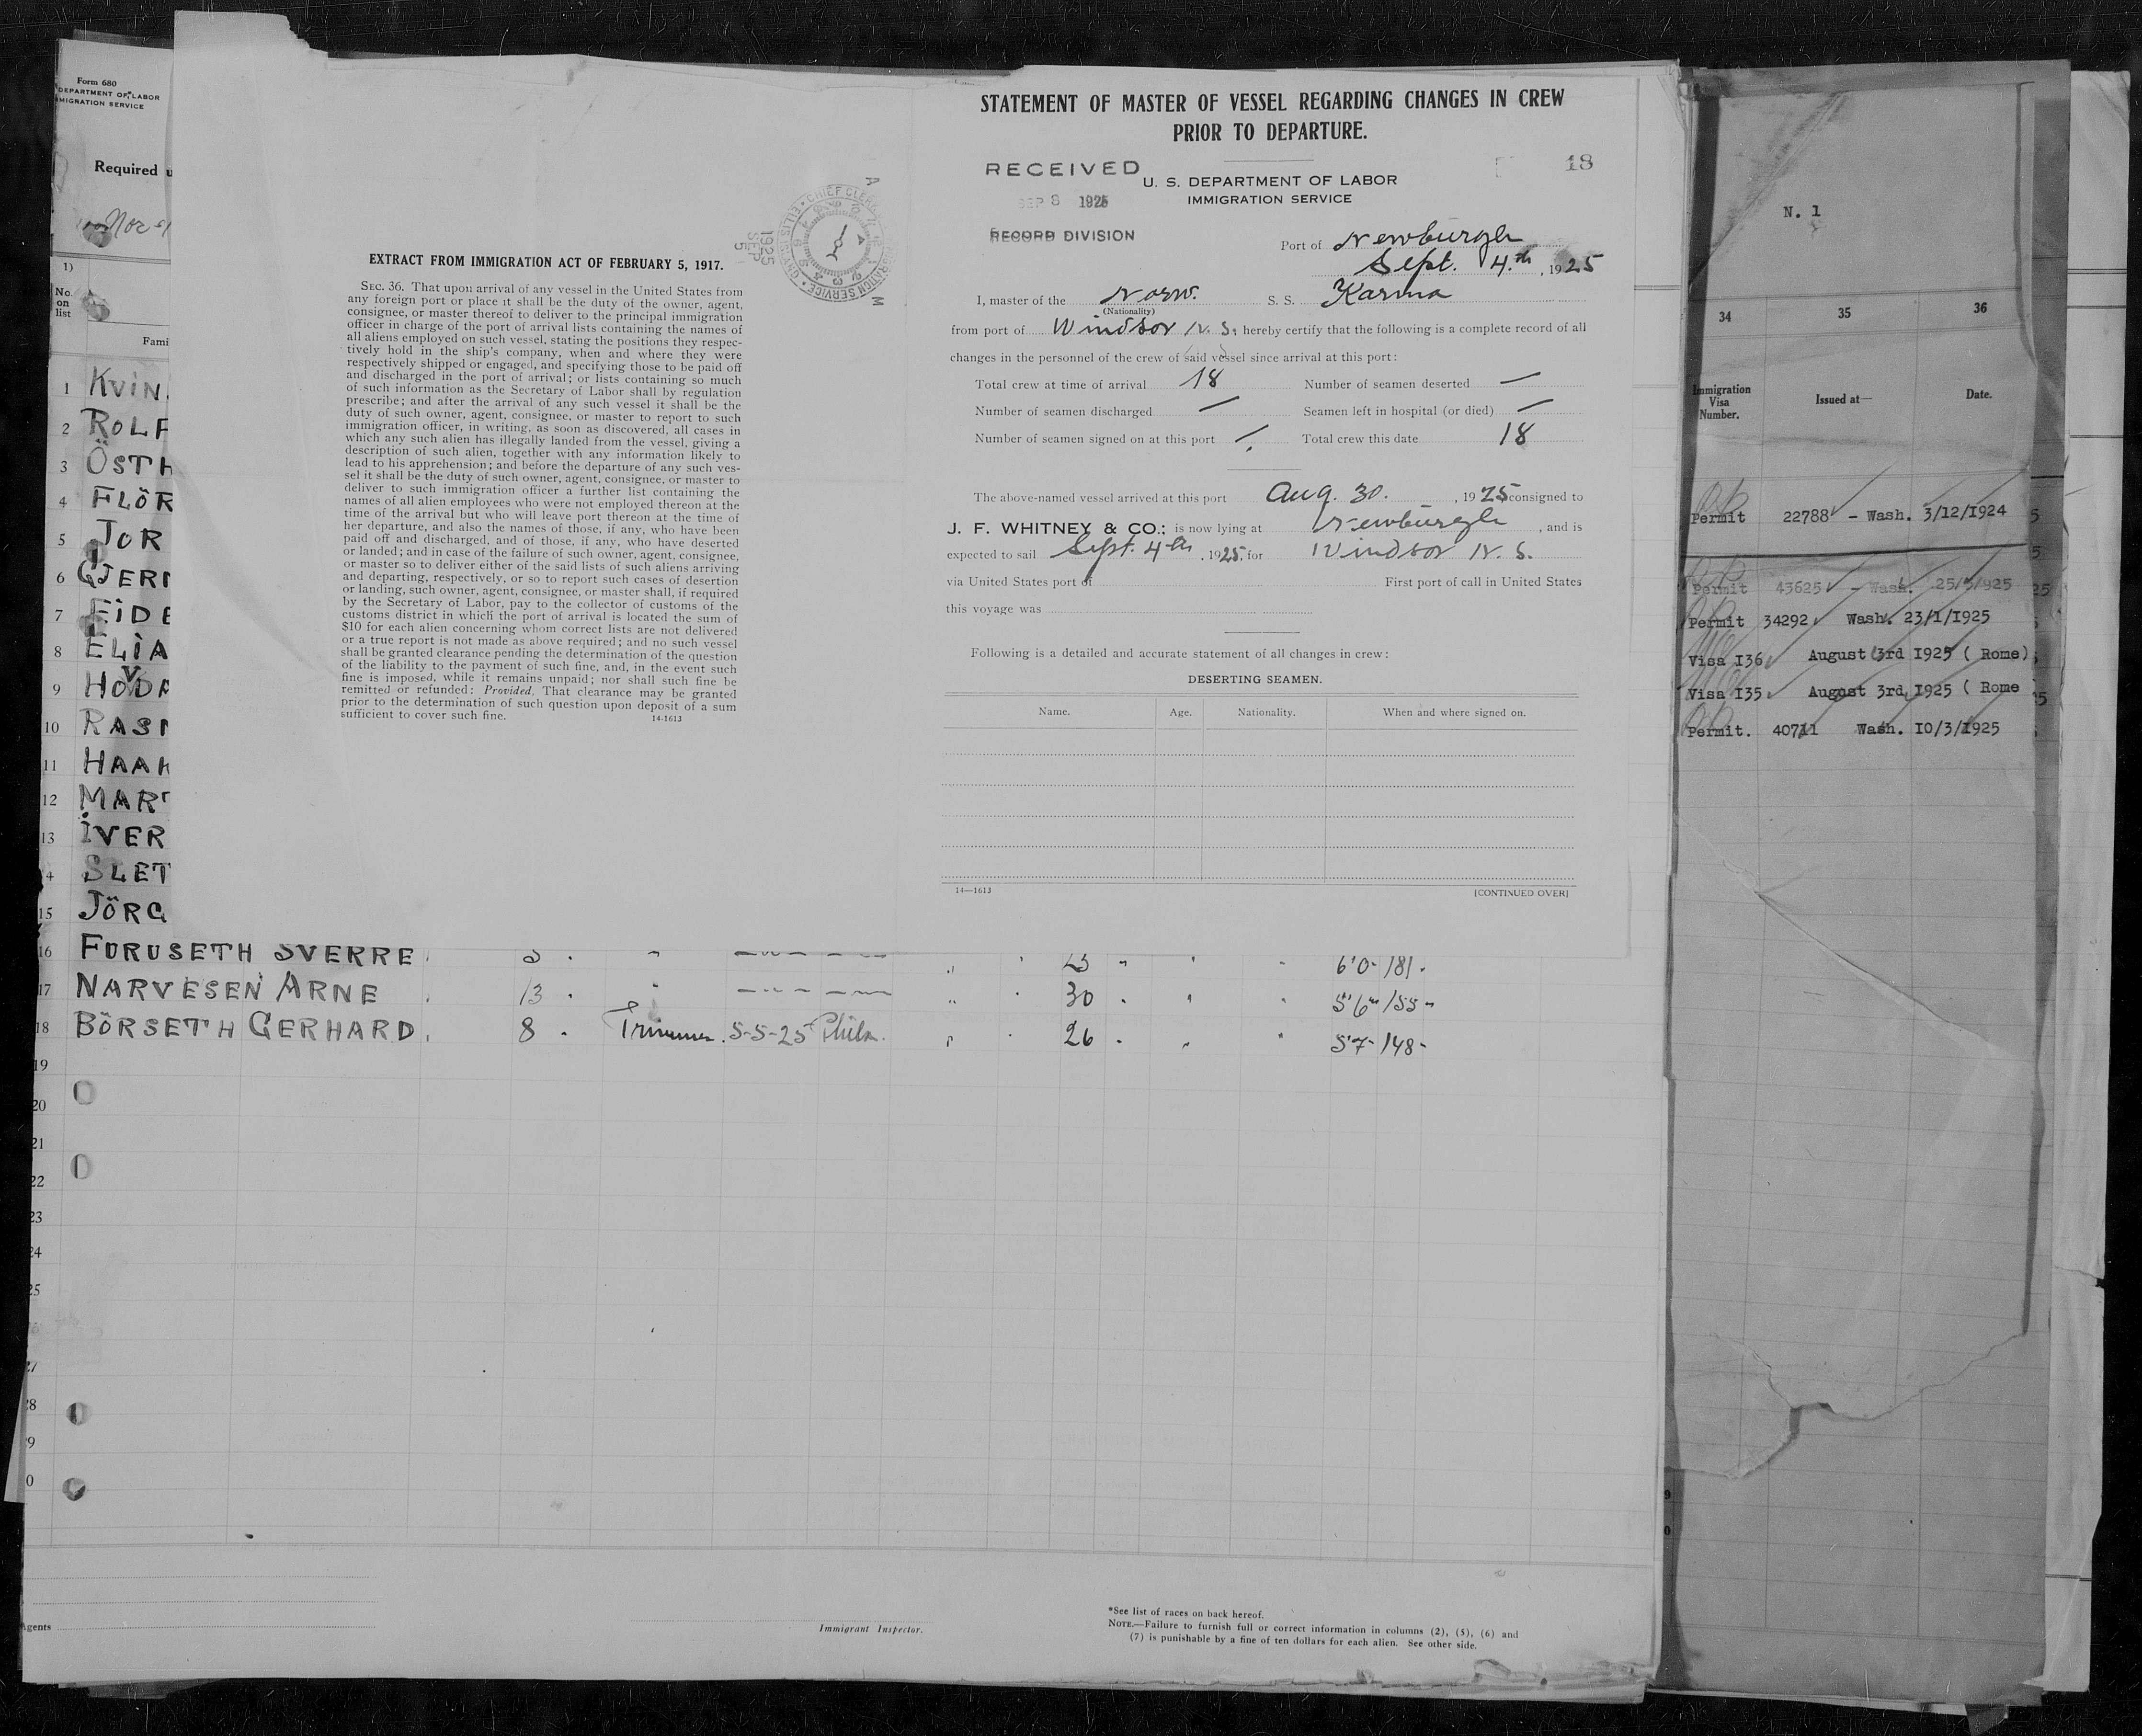 Form 680
DEPARTMENT OF LABOR
MIGRATION SERVICE
Required u
1)
No.
on
list
Fami
1 KVIN.
2 ROLF
3 ÖSTH
4 FLÖR
5 JOR
6 GJERN
7 EIDE
8 ELIA
9 HODA
10 RASM
11 HAAK
12 MART
13 IVER
4 SLET
15 JÖRG
16 FURUSETH SVERRE
6'0- 181-
17 NARVESEN ARNE 13 30 5'6" 155"
18 BÖRSETH GERHARD 8 Trimmer 5-5-25 Phila. 26 5'7- 148-
19
20
21
22
23
24
25
27
28
9
0
Agents
Immigrant Inspector.
*See list of races on back hereof.
NOTE.—Failure to furnish full or correct information in columns (2), (5), (6) and
(7) is punishable by a fine of ten dollars for each alien. See other side.
EXTRACT FROM IMMIGRATION ACT OF FEBRUARY 5, 1917.
SEC. 36. That upon arrival of any vessel in the United States from
any foreign port or place it shall be the duty of the owner, agent,
consignee, or master thereof to deliver to the principal immigration
officer in charge of the port of arrival lists containing the names of
all aliens employed on such vessel, stating the positions they respec-
tively hold in the ship's company, when and where they were
respectively shipped or engaged, and specifying those to be paid off
and discharged in the port of arrival; or lists containing so much
of such information as the Secretary of Labor shall by regulation
prescribe; and after the arrival of any such vessel it shall be the
duty of such owner, agent, consignee, or master to report to such
immigration officer, in writing, as soon as discovered, all cases in
which any such alien has illegally landed from the vessel, giving a
description of such alien, together with any information likely to
lead to his apprehension; and before the departure of any such ves-
sel it shall be the duty of such owner, agent, consignee, or master to
deliver to such immigration officer a further list containing the
names of all alien employees who were not employed thereon at the
time of the arrival but who will leave port thereon at the time of
her departure, and also the names of those, if any, who have been
paid off and discharged, and of those, if any, who have deserted
or landed; and in case of the failure of such owner, agent, consignee,
or master so to deliver either of the said lists of such aliens arriving
and departing, respectively, or so to report such cases of desertion
or landing, such owner, agent, consignee, or master shall, if required
by the Secretary of Labor, pay to the collector of customs of the
customs district in which the port of arrival is located the sum of
$10 for each alien concerning whom correct lists are not delivered
or a true report is not made as above required; and no such vessel
shall be granted clearance pending the determination of the question
of the liability to the payment of such fine, and, in the event such
fine is imposed, while it remains unpaid; nor shall such fine be
remitted or refunded: Provided, That clearance may be granted
prior to the determination of such question upon deposit of a sum
sufficient to cover such fine. 14-1613
1925
SEP
5
STATEMENT OF MASTER OF VESSEL REGARDING CHANGES IN CREW
PRIOR TO DEPARTURE.
RECEIVED
SEP 8 1925
RECORD DIVISION
18
U. S. DEPARTMENT OF LABOR
IMMIGRATION SERVICE
Port of Newburgh
Sept. 4th, 1925
I, master of the Norw. S. S. Karma
(Nationality)
from port of Windsor N. S., hereby certify that the following is a complete record of all
changes in the personnel of the crew of said vessel since arrival at this port:
Total crew at time of arrival 18 Number of seamen deserted —
Number of seamen discharged — Seamen left in hospital (or died) —
Number of seamen signed on at this port — Total crew this date 18
The above-named vessel arrived at this port Aug. 30. , 1925 consigned to
J. F. WHITNEY & CO.; is now lying at Newburgh , and is
expected to sail Sept. 4th , 1925. for Windsor N. S.
via United States port of First port of call in United States
this voyage was
Following is a detailed and accurate statement of all changes in crew:
DESERTING SEAMEN.
Name. Age. Nationality. When and where signed on.
14—1613 [CONTINUED OVER]
N. 1
34 35 36
Immigration
Visa
Number.
Issued at—
Date.
Permit 22788 - Wash. 3/12/1924
Permit 43625 - Wash. 25/3/1925
Permit 34292 Wash. 23/1/1925
Visa I36 August 3rd I925 ( Rome)
Visa I35 August 3rd I925 ( Rome
Permit. 40711 Wash. I0/3/1925